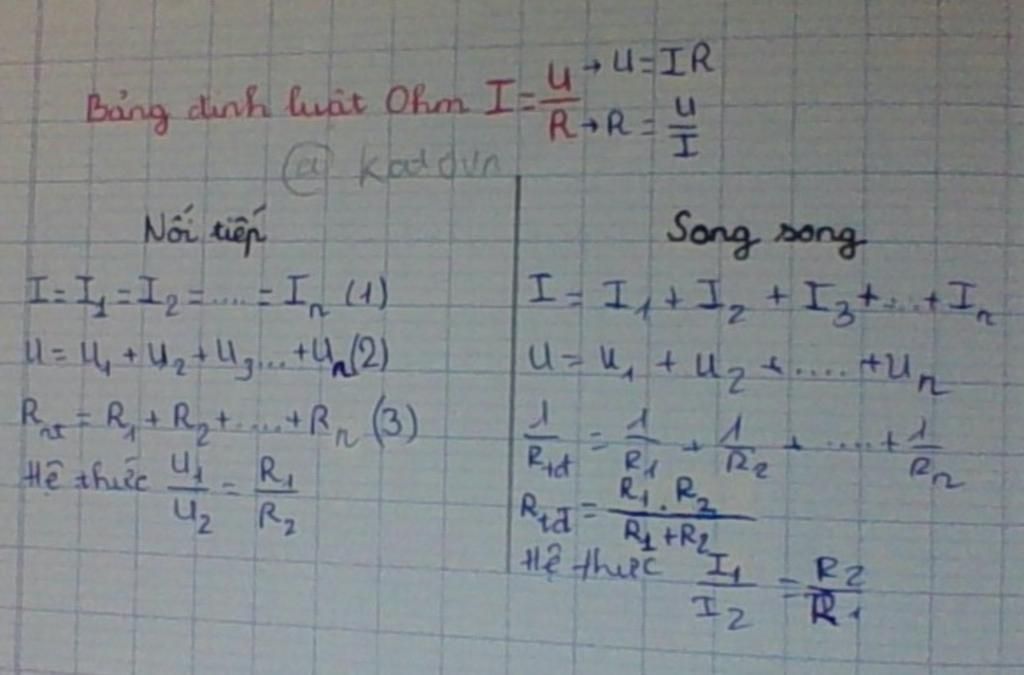 Bảng định luật Ohm I = U/R → U = IR
→ R = U/I
@ kad dun
Nối tiếp
I = I₁ = I₂ = .... = Iₙ (1)
U = U₁ + U₂ + U₃ ... + Uₙ (2)
Rₙₜ = R₁ + R₂ + .... + Rₙ (3)
Hệ thức U₁/U₂ = R₁/R₂
Song song
I = I₁ + I₂ + I₃ + ... + Iₙ
U = U₁ + U₂ + .... + Uₙ
1/Rtđ = 1/R₁ + 1/R₂ + ..... + 1/Rₙ
Rtđ = R₁ . R₂ / R₁ + R₂
Hệ thức I₁/I₂ = R₂/R₁